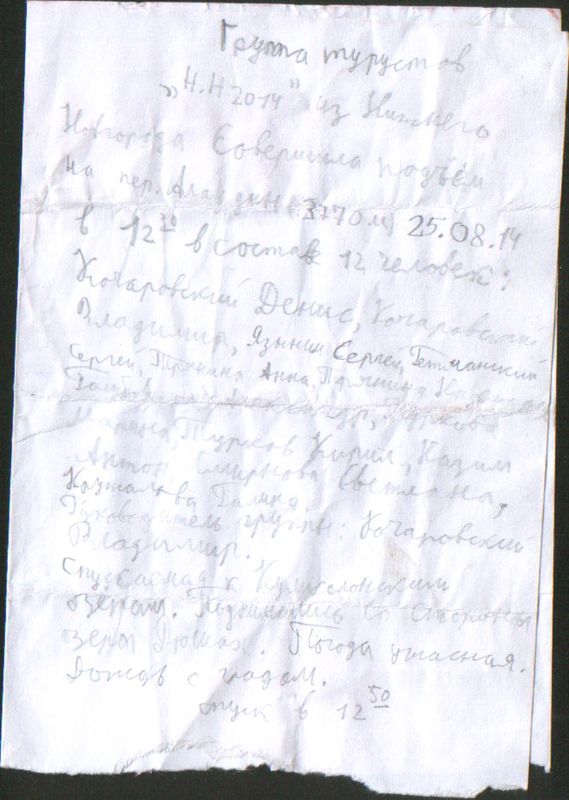 Группа турустов
„Н.Н 2014" из Нижнего
Новгорода Совершила подъём
на пер. Алаудин (3770 м) 25.08.14
в 12 20 в составе 12 человек:
Кочаровский Денис, Кочаровский
Владимир, Языний Сергей, Гетманский
Сергей, Трянина Анна, Трянина
Марина, Турков Кирил, Казим
Антон Смирнова Светлана,
Галина.
Руководитель группы: Кочаровский
Владимир.
Спускаемся к Куликолонским
озёрам. Поднимались со стороны
озера Дюшах. Погода ужасная.
Дождь с градом.
спуск в 12 50